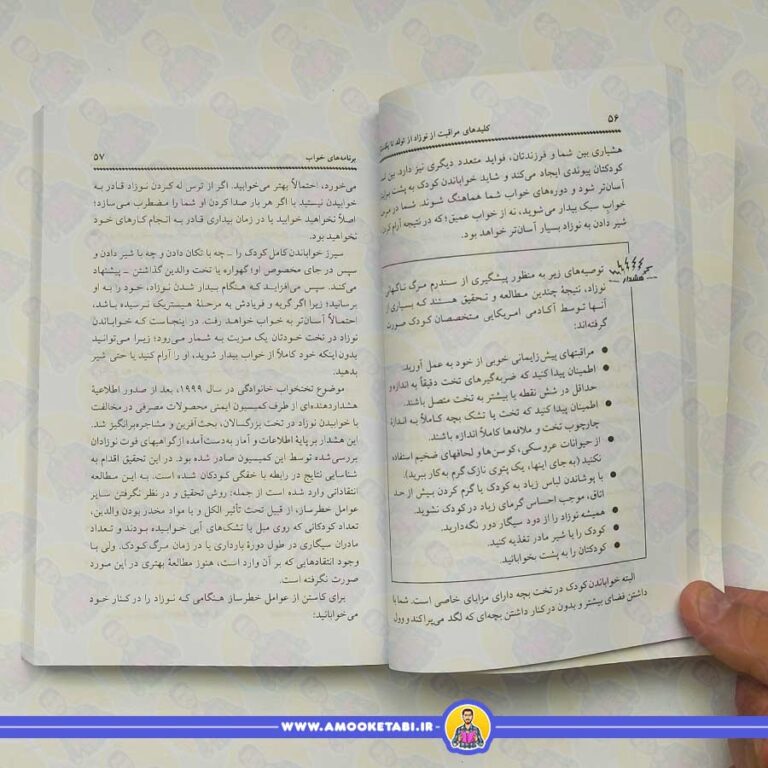 ۵۶
کلیدهای مراقبت از نوزاد از تولد تا یک
هشیاری بین شما و فرزندتان، فواید متعدد دیگری نیز دارد. بین
کودکتان پیوندی ایجاد می‌کند و شاید خواباندن کودک به پشت برای
آسان‌تر شود و دوره‌های خواب شما هماهنگ شوند. شما در
خواب سبک بیدار می‌شوید، نه از خواب عمیق؛ که در نتیجه آرام کردن
شیر دادن به نوزاد بسیار آسان‌تر خواهد بود.
هشدار
توصیه‌های زیر به منظور پیشگیری از سندرم مرگ ناگهانی
نوزاد، نتیجهٔ چندین مطالعه و تحقیق هستند که بسیاری از
آنها توسط آکادمی امریکایی متخصصان کودک صورت
گرفته‌اند:
● مراقبتهای پیش‌زایمانی خوبی از خود به عمل آورید.
● اطمینان پیدا کنید که ضربه‌گیرهای تخت دقیقاً به اندازه و
حداقل در شش نقطه یا بیشتر به تخت متصل باشند.
● اطمینان پیدا کنید که تخت یا تشک بچه کاملاً به اندازهٔ
چارچوب تخت و ملافه‌ها کاملاً اندازه باشند.
● از حیوانات عروسکی، کوسن‌ها و لحافهای ضخیم استفاده
نکنید (به جای اینها، یک پتوی نازک گرم به کار ببرید).
● با پوشاندن لباس زیاد به کودک یا گرم کردن بیش از حد
اتاق، موجب احساس گرمای زیاد در کودک نشوید.
● همیشه نوزاد را از دود سیگار دور نگه‌دارید.
● کودک را با شیر مادر تغذیه کنید.
● کودکتان را به پشت بخوابانید.
البته خواباندن کودک در تخت بچه دارای مزایای خاصی است. شما با
داشتن فضای بیشتر و بدون در کنار داشتن بچه‌ای که لگد می‌پراکند و وول
برنامه‌های خواب
۵۷
می‌خورد، احتمالاً بهتر می‌خوابید. اگر از ترس له کردن نوزاد قادر به
خوابیدن نیستید یا اگر هر بار صدا کردن او شما را مضطرب می‌سازد؛
اصلاً نخواهید خوابید یا در زمان بیداری قادر به انجام کارهای خود
نخواهید بود.
سیرز خواباندن کامل کودک را ــ چه با تکان دادن و چه با شیر دادن و
سپس در جای مخصوص او؛ گهواره یا تخت والدین گذاشتن ــ پیشنهاد
می‌کند. سپس می‌افزاید که هنگام بیدار شدن نوزاد، خود را به او
برسانید؛ زیرا اگر گریه و فریادش به مرحلهٔ هیستریک نرسیده باشد،
احتمالاً آسان‌تر به خواب خواهد رفت. در اینجاست که خواباندن
نوزاد در تخت خودتان یک مزیت به شمار می‌رود؛ زیرا می‌توانید
بدون اینکه خود کاملاً از خواب بیدار شوید، او را آرام کنید یا حتی شیر
بدهید.
موضوع تختخواب خانوادگی در سال ۱۹۹۹، بعد از صدور اطلاعیهٔ
هشداردهنده‌ای از طرف کمیسیون ایمنی محصولات مصرفی در مخالفت
با خوابیدن نوزاد در تخت بزرگسالان، بحث‌آفرین و مشاجره‌برانگیز شد.
این هشدار بر پایهٔ اطلاعات و آمار به‌دست‌آمده از گواهیهای فوت نوزادان
بررسی‌شده توسط این کمیسیون صادر شده بود. در این تحقیق اقدام به
شناسایی نتایج در رابطه با خفگی کودکان شده است. به این مطالعه
انتقاداتی وارد شده است از جمله: روش تحقیق و در نظر نگرفتن سایر
عوامل خطرساز، از قبیل تحت تأثیر الکل و یا مواد مخدر بودن والدین،
تعداد کودکانی که روی مبل یا تشک‌های آبی خوابیده بودند و تعداد
مادران سیگاری در طول دورهٔ بارداری یا در زمان مرگ کودک. ولی با
وجود انتقادهایی که بر آن وارد است، هنوز مطالعهٔ بهتری در این مورد
صورت نگرفته است.
برای کاستن از عوامل خطرساز هنگامی که نوزاد را در کنار خود
می‌خوابانید:
WWW.AMOOKETABI.IR